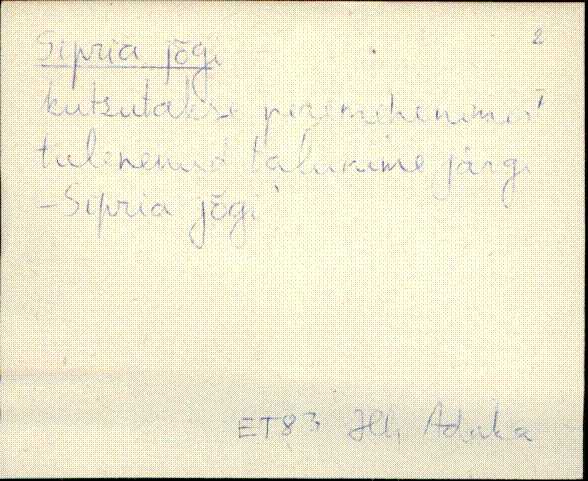 2
Sipria jõgi
kutsutakse peremehenimest
tulenenud talunime järgi
– Sipria jõgi
ET83